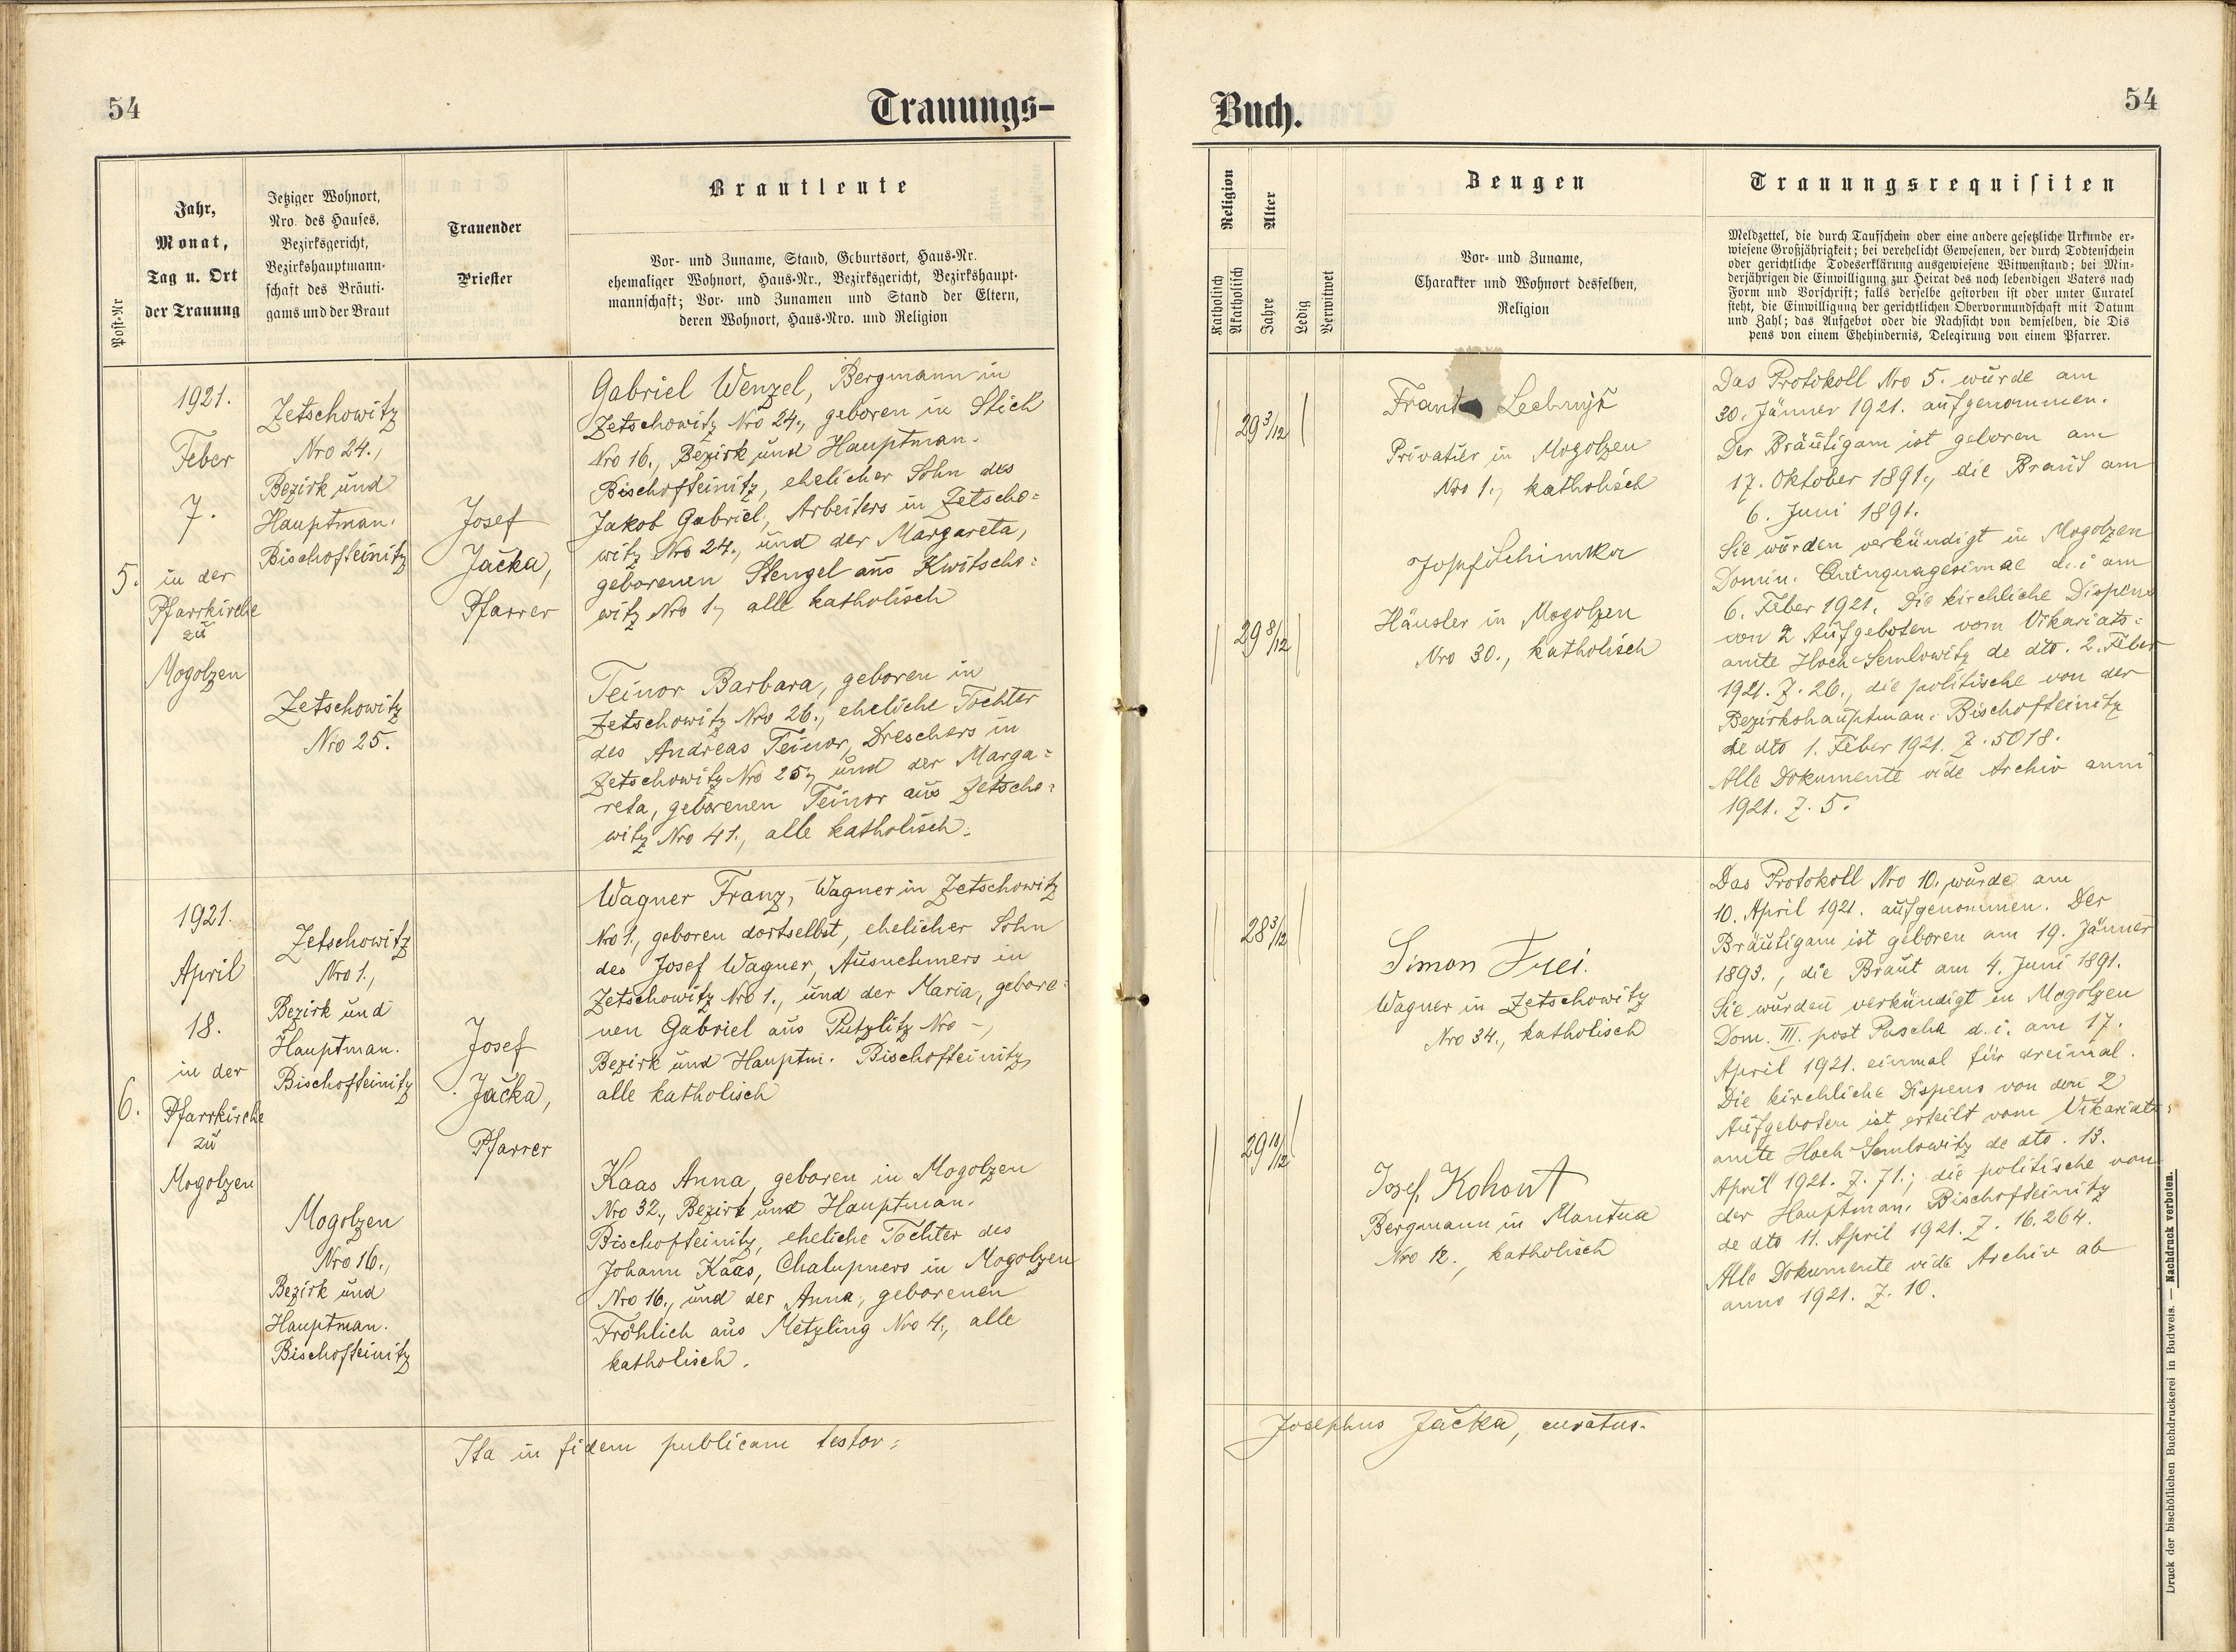 54
Trauungs-
Post-Nr
Jahr,
Monat,
Tag u. Ort
der Trauung
Jetziger Wohnort,
Nro. des Hauses,
Bezirksgericht,
Bezirkshauptmann-
schaft des Bräuti-
gams und der Braut
Trauender
Priester
Brautleute
Vor- und Zuname, Stand, Geburtsort, Haus-Nr.
ehemaliger Wohnort, Haus-Nr., Bezirksgericht, Bezirkshaupt-
mannschaft; Vor- und Zunamen und Stand der Eltern,
deren Wohnort, Haus-Nro. und Religion
5.
1921.
Feber
7.
in der
Pfarrkirche
zu
Mogolzen
Zetschowitz
Nro 24.,
Bezirk und
Hauptman.
Bischofteinitz
Zetschowitz
Nro 25.
Josef
Jačka,
Pfarrer
Gabriel Wenzel, Bergmann in
Zetschowitz Nro 24., geboren in Stich
Nro 16., Bezirk und Hauptman.
Bischofteinitz, ehelicher Sohn des
Jakob Gabriel, Arbeiters in Zetscho=
witz Nro 24., und der Margareta,
geborenen Stengel aus Kwitscho=
witz Nro 1., alle katholisch
Teinor Barbara, geboren in
Zetschowitz Nro 26., eheliche Tochter
des Andreas Teinor, Dreschers in
Zetschowitz Nro 25., und der Marga=
reta, geborenen Teinor aus Zetscho=
witz Nro 41., alle katholisch.
6.
1921.
April
18.
in der
Pfarrkirche
zu
Mogolzen
Zetschowitz
Nro 1.,
Bezirk und
Hauptman.
Bischofteinitz
Mogolzen
Nro 16.,
Bezirk und
Hauptman.
Bischofteinitz
Josef
Jačka,
Pfarrer
Wagner Franz, Wagner in Zetschowitz
Nro 1., geboren dortselbst, ehelicher Sohn
des Josef Wagner, Ausnehmers in
Zetschowitz Nro 1., und der Maria, gebore=
nen Gabriel aus Putzlitz Nro -,
Bezirk und Hauptm. Bischofteinitz,
alle katholisch
Kaas Anna, geboren in Mogolzen
Nro 32., Bezirk und Hauptman.
Bischofteinitz, eheliche Tochter des
Johann Kaas, Chalupners in Mogolzen
Nro 16., und der Anna, geborenen
Fröhlich aus Metzling Nro 4., alle
katholisch.
Ita in fidem publicam testor:
Buch.
54
Religion
Katholisch
Akatholisch
Alter
Jahre
Ledig
Verwitwet
Zeugen
Vor- und Zuname,
Charakter und Wohnort desselben,
Religion
Trauungsrequisiten
Meldzettel, die durch Taufschein oder eine andere gesetzliche Urkunde er-
wiesene Großjährigkeit; bei verehelicht Gewesenen, der durch Todtenschein
oder gerichtliche Todeserklärung ausgewiesene Witwenstand; bei Min-
derjährigen die Einwilligung zur Heirat des noch lebendigen Vaters nach
Form und Vorschrift; falls derselbe gestorben ist oder unter Curatel
steht, die Einwilligung der gerichtlichen Obervormundschaft mit Datum
und Zahl; das Aufgebot oder die Nachsicht von demselben, die Dis
pens von einem Ehehindernis, Delegirung von einem Pfarrer.
29 3/12
29 8/12
Privatier in Mogolzen
Nro 1., katholisch
Josef Schimka
Häusler in Mogolzen
Nro 30., katholisch
Das Protokoll Nro 5. wurde am
30. Jänner 1921. aufgenommen.
Der Bräutigam ist geboren am
17. Oktober 1891., die Braut am
6. Juni 1891.
Sie wurden verkündigt in Mogolzen
Domin. Quinquagesimae d. i am
6. Feber 1921. Die kirchliche Dispens
von 2 Aufgeboten vom Vikariats=
amte Hoch-Semlowitz de dto. 2. Feber
1921. Z. 26., die politische von der
Bezirkshauptman. Bischofteinitz
de dto 1. Feber 1921. Z. 5018.
Alle Dokumente vide Archiv anni
1921. Z. 5.
28 3/12
29 10/12
Simon Frei.
Wagner in Zetschowitz
Nro 34., katholisch
Josef Kohout
Bergmann in Mantua
Nro 12., katholisch
Das Protokoll Nro 10. wurde am
10. April 1921. aufgenommen. Der
Bräutigam ist geboren am 19. Jänner
1893., die Braut am 4. Juni 1891.
Sie wurden verkündigt in Mogolzen
Dom. III. post Pascha d. i. am 17.
April 1921. einmal für dreimal.
Die kirchliche Dispens von den 2
Aufgeboten ist erteilt vom Vikariats=
amte Hoch-Semlowitz de dto. 13.
April 1921. Z. 71.; die politische von
der Hauptman. Bischofteinitz
de dto 11. April 1921. Z. 16.264.
Alle Dokumente vide Archiv ab
anno 1921. Z. 10.
Josephus Jačka, curatus.
Druck der bischöflichen Buchdruckerei in Budweis. — Nachdruck verboten.